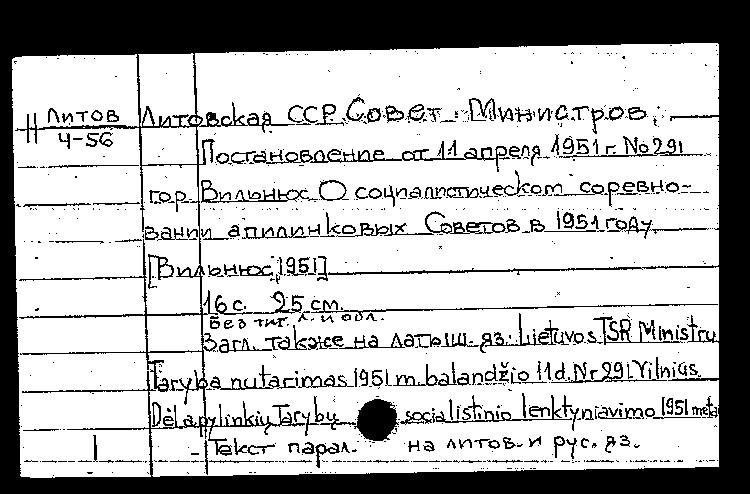 Н Литов Литовская ССР. Совет Министров.
4-56
Постановление от 11 апреля 1951 г. No 291
гор. Вильнюс О социалистическом соревно-
вании апилинковых Советов в 1951 году.
[Вильнюс, 1951]
16 с. 25 см.
Без тит. л. и обл.
Загл. также на латыш. яз.: Lietuvos TSR Ministrų
Taryba nutarimas 1951 m. balandžio 11 d. Nr 291 Vilnius.
Dėl apylinkių Tarybų socialistinio lenktyniavimo 1951 meta
1 - Текст парал. на литов. и рус. яз.